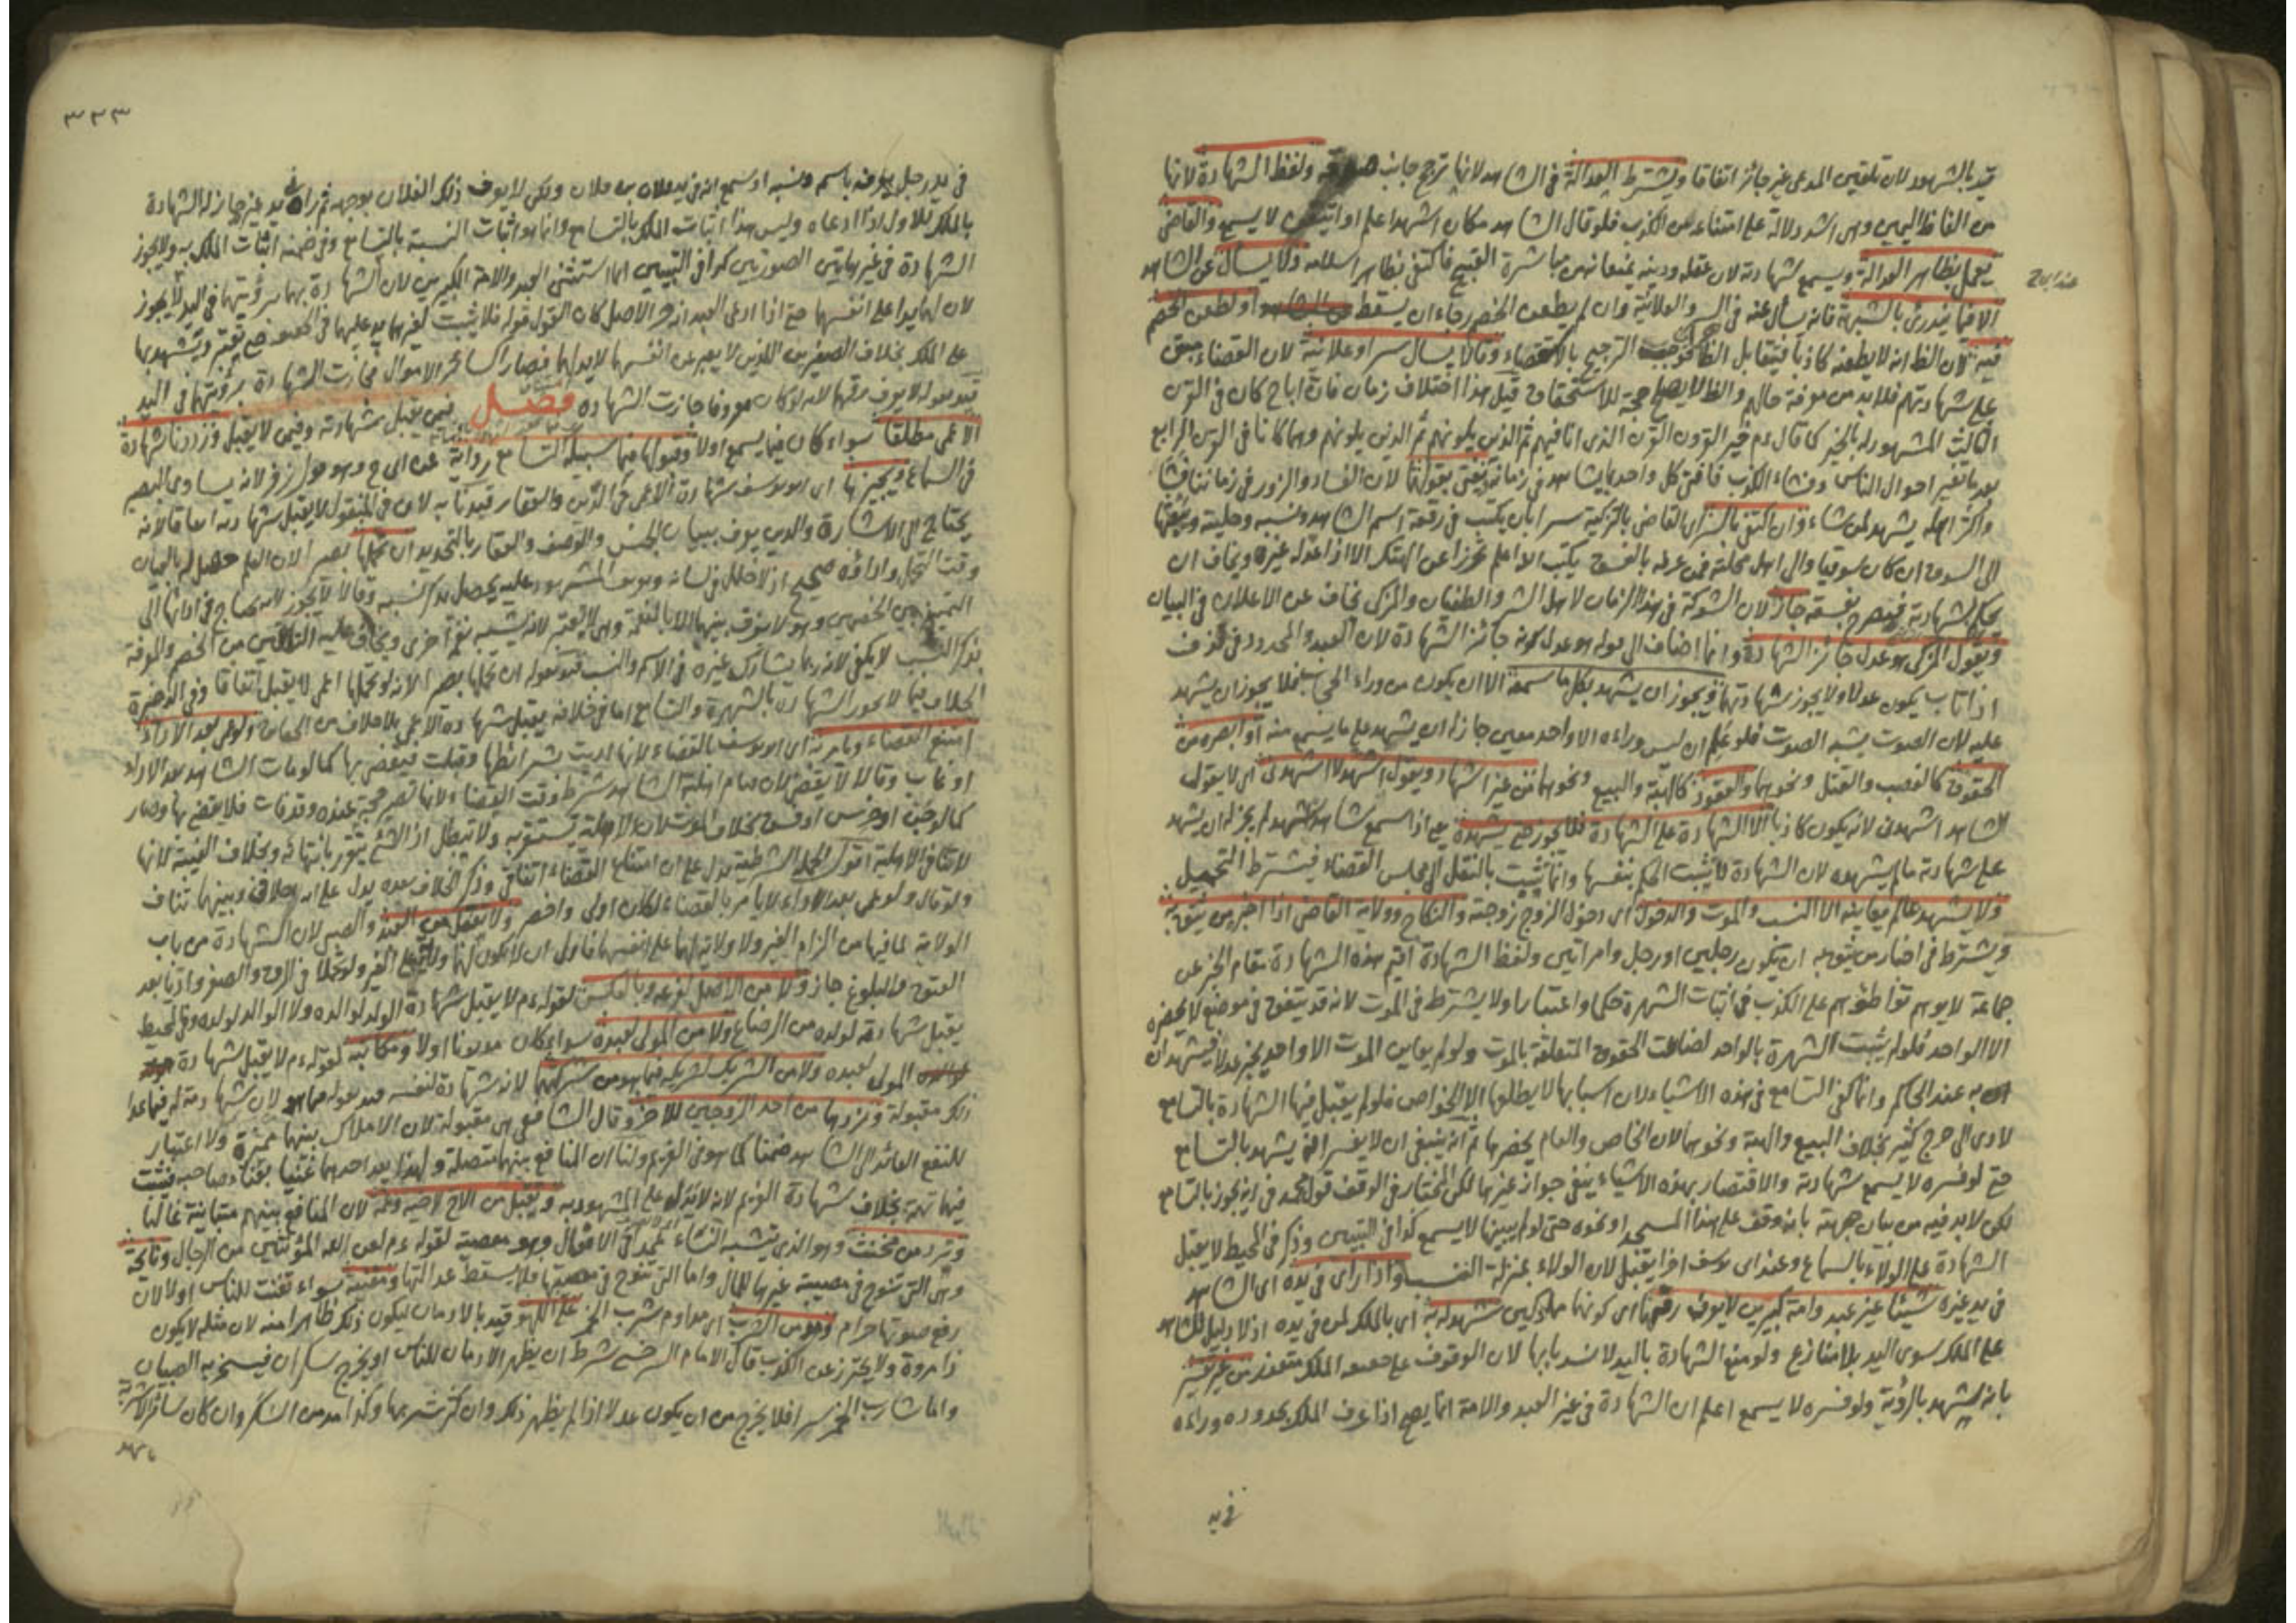 قيد بالشهود لان تلقين المدعى غير جائز اتفاقا ويشترط العدالة فى الشاهد لانها ترجح جانب صدقه ولفظ الشهادة لانها
من الفاظ اليمين وهى اشد دلالة على امتناعه عن الكذب فلو قال الشاهد مكان اشهد اعلم او اتيقن لا يسمع والقاضى
يعمل بظاهر العدالة ويسمع شهادته لان عقله ودينه يمنعانه عن مباشرة القبيح فاكتفى بظاهر اسلامه ولا يسأل عن الشاهد
عند ابى ح
الا فيما يندرئ بالشبهة فانه يسأل عنه فى السر والعلانية وان لم يطعن الخصم رجاء ان يسقط او لطعن الخصم
فيه لان الظ انه لا يطعنه كاذبا فيتقابل الظاهران الترجيح بالاستقصاء وقالا يسأل سرا وعلانية لان القضاء مبنى
على شهادتهم فلا بد من معرفة حالهم والظ لا يصلح حجة للاستحقاق قيل هذا اختلاف زمان فان ابا ح كان فى القرن
الثالث المشهود له بالخير كما قال عم خير القرون القرن الذى انا فيهم ثم الذين يلونهم ثم الذين يلونهم وهما كانا فى القرن الرابع
بعد ما تغير احوال الناس وفشاء الكذب فافتى كل واحد بما يشاهد فى زمانه ويفتى بقولهما لان الفساد والزور فى زماننا فشا
واكثر اهله يشهد لمن شاء وان اكتفى بالسر اى القاضى بالتزكية سرا بان يكتب فى رقعة اسم الشاهد ونسبه وحليته ويبعثها
الى السوق ان كان سوقيا والى اهل محلته فمن عرفه بالفسق يكتب الله اعلم تحرزا عن الهتك الا اذا عدله غيره ويخاف ان
يحكم بشهادته فيصرح بفسقه جاز لان الشوكة فى هذا الزمان لاهل الشر والطغيان والمزكى يخاف عن الاعلان فى البيان
ويقول المزكى هو عدل جائز الشهادة وانما اضاف الى قوله هو عدل كونه جائز الشهادة لان العبد والمحدود فى قذف
اذا تاب يكون عدلا ولا يجوز شهادتهما ويجوز ان يشهد بكل ما سمعه الا ان يكون من وراء الحجاب فلا يجوز ان يشهد
عليه لان الصوت يشبه الصوت فلو علم ان ليس وراءه الا واحد معين جاز ان يشهد على ما يسمع منه او ابصره من
الحقوق كالغصب والقتل ونحوهما والعقود كالهبة والبيع ونحوهما من غير اشهاد ويقول اشهد لا اشهدنى اى لا يقول
الشاهد اشهدنى لانه يكون كاذبا الا الشهادة على الشهادة فلا يجوز حتى يشهده يعنى اذا سمع شاهدا يشهد لم يجز له ان يشهد
على شهادته ما لم يشهده لان الشهادة لا يثبت الحكم بنفسها وانما يثبت بالنقل الى مجلس القضاء فيشترط التحميل
ولا يشهد عالم يعاينه الا النسب والموت والدخول اى دخول الزوج زوجته والنكاح وولاية القاضى اذا اخبره من يثق به
ويشترط فى اخبار من يثق به ان يكون رجلين او رجل وامراتين ولفظ الشهادة اقيم هذه الشهادة مقام الخبر عن
جماعة لا يوهم تواطئهم على الكذب فى اثبات الشهرة حكما واعتبارا ولا يشترط فى الموت لانه قد يتفق فى موضع لا يحضره
الا الواحد فلو لم يثبت الشهرة بالواحد لضاعت الحقوق المتعلقة بالموت ولو لم يعاين الموت الا واحد يخبر عدلا فيشهدان
به عند الحاكم وانما كفى التسامع فى هذه الاشياء لان اسبابها لا يطلعها الا الخواص فلو لم يقبل فيها الشهادة بالتسامع
لادى الى حرج كثير بخلاف البيع والهبة ونحوهما لان الخاص والعام يحضرها ثم انه ينبغى ان لا يفسر انه يشهد بالتسامع
حتى لو فسره لا يسمع شهادته والاقتصار بهذه الاشياء ينفى جواز غيرها لكن المختار فى الوقف قول محمد فى انه يجوز بالتسامع
لكن لا بد فيه من بيان جهته بانه وقف على هذا المسجد او نحوه حتى لو لم يبينها لا يسمع كذا فى التبيين وذكر فى المحيط لا يقبل
الشهادة على الولاء بالسماع وعند ابى يوسف اخرا يقبل لان الولاء بمنزلة النسب واذا راى فى يده اى الشاهد
فى يد غيره شيئا غير عبد وامة كبيرين لا يعرف رقهما اى كونهما مملوكين شهد له به اى بالملك لمن فى يده اذ لا دليل للشاهد
على الملك سوى اليد بلا منازع ولو منع الشهادة باليد لانسد بابها لان الوقوف على حقيقة الملك متعذر من غير تفسير
بانه يشهد بالرؤية ولو فسره لا يسمع اعلم ان الشهادة فى غير العبد والامة انما يصح اذا عرف الملك بحدوده وراءه
فى يد
٣٣٣
فى يد رجل يعرفه باسمه ونسبه او سمع انه فى يد فلان بن فلان ولكن لا يعرف ذلك الفلان بوجهه ثم راه فى يد غيره جاز له الشهادة
بالملك للاول اذا ادعاه وليس هذا اثبات الملك بالتسامع وانما هو اثبات النسبة بالتسامع وفى ضمنه اثبات الملك به ولا يجوز
الشهادة فى غير هاتين الصورتين كذا فى التبيين انما استثنى العبد والامة الكبيرين لان الشهادة بهما برؤيتهما فى اليد لا يجوز
لان لهما يدا على انفسهما حتى اذا ادعى العبد انه حر الاصل كان القول قوله فلا يثبت لغيرهما يد عليهما فى الحقيقة حتى يعتبر ويشهد بها
على الملك بخلاف الصغيرين اللذين لا يعبرعن انفسهما لا يد لهما فصار كسائر الاموال فجازت الشهادة برؤيتهما فى اليد
قيد بقوله لا يعرف رقهما لانه لو كان معروفا جازت الشهادة فصل فيمن يقبل شهادته وفيمن لا يقبل ورددنا شهادة
الاعمى مطلقا سواء كان فيما يسمع اولا وقبولها فيما سبيله التسامع رواية عن ابى ح وهو قول زفر لانه يساوى البصير
فى السماع ويجيزها اى ابو يوسف شهادة الاعمى فى الدين والعقار قيدنا به لان فى المنقول لا يقبل شهادته اتفاقا لانه
يحتاج الى الاشارة والدين يعرف ببيان الجنس والوصف والعقار بالتحديد ان تحملها بصيرا لان العلم حصل له بالعيان
وقت التحمل واداؤه صحيح اذ لا خلل فى لسانه وتعريف المشهود عليه يحصل بذكر نسبه وقالا لا يجوز لانه يحتاج فى ادائها الى
التمييز بين الخصمين وهو لا يفرق بينهما الا بالنغمة وهى لا يعتبر لانه يشبه نغم اخرى ويخاف عليه التلقين من الخصم والمعرفة
بذكر النسب لا يكفى لانه ربما يشارك غيره فى الاسم والنسب قيد بقوله ان تحملها بصيرا لانه لو تحملها اعمى لا يقبل اتفاقا وفى الذخيرة
الخلاف فيما لا يجوز الشهادة بالشهرة والتسامع اما فى خلافه يقبل شهادة الاعمى بلا خلاف من الحقائق ولو عمى بعد الاداء
امتنع القضاء ويامر به اى ابو يوسف بالقضاء لانها اديت بشرائطها وقبلت فيقضى بها كما لو مات الشاهد بعد الاداء
او غاب وقالا لا يقضى لان قيام اهلية الشاهد شرط وقت القضاء لانها تصير حجة عنده وقد فات فلا يقضى بها وصار
كما لو جن او خرس او فسق بخلاف الموت لان الاهلية يستقر به ولا تبطل اذ الشئ يتقرر بانتهائه وبخلاف الغيبة لانها
لا تنافى الاهلية اقول الجملة الشرطية يدل على ان امتناع القضاء اتفاقى وذكر الخلاف بعده يدل على انه خلافى وبينهما تناف
ولو قال ولو عمى بعد الاداء لا يامر بالقضاء لكان اولى واخصر ولا يقبل من العبد والصبى لان الشهادة من باب
الولاية لما فيها من الزام الغير ولا ولاية لهما على انفسهما فاولى ان لا يكون لهما ولاية على الغير ولو تحملا فى الرق والصغر وادّيا بعد
العتق والبلوغ جاز ولا من الاصل لفرعه وبالعكس لقوله عم لا يقبل شهادة الولد لوالده ولا الوالد لولده وفى المحيط
يقبل شهادته لولده من الرضاع ولا من المولى لعبده سواء كان مديونا اولا ومكاتبه لقوله عم لا يقبل شهادة
المولى لعبده ولا من الشريك لشريكه فيما هو من شركتهما لانه شهادة لنفسه قيد بقوله فيما هو لان شهادته له فيما عدا
ذلك مقبولة ونردها من احد الزوجين للاخر وقال الشافعى هى مقبولة لان الاملاك بينهما مميزة ولا اعتبار
للنفع العائد الى الشاهد ضمنا كما هو فى الغريم ولنا ان المنافع بينهما متصلة ولهذا يعد احدهما غنيا بغناء صاحبه فتثبت
فيها تهمة بخلاف شهادة الغريم لانه لا يد له على المشهود به ويقبل من الاخ لاخيه وعمه لان المنافع بينهم متباينة غالبا
ويرد من مخنث وهو الذى يتشبه النساء عمدا فى الافعال وهو معصية لقوله عم لعن الله المؤنثين من الرجال ونائحة
وهى التى تنوح فى مصيبة غيرها للمال واما التى تنوح فى مصيبتها فلا يسقط عدالتها ومغنية سواء تغنت للناس اولا لان
رفع صوتها حرام ومدمن الشرب اى مداوم شرب الخمر على اللهو قيد بالادمان ليكون ذلك ظاهرا منه لان مثله لا يكون
ذا مروة ولا يحترز عن الكذب قال الامام السرخسى شرط ان يظهر الادمان للناس او يخرج سكران فيسخر به الصبيان
واما شارب الخمر سرا فلا يخرج من ان يكون عدلا اذا لم يظهر ذلك وان كثر شربها وكذا مدمن السكر وان كان سائر الاشربة